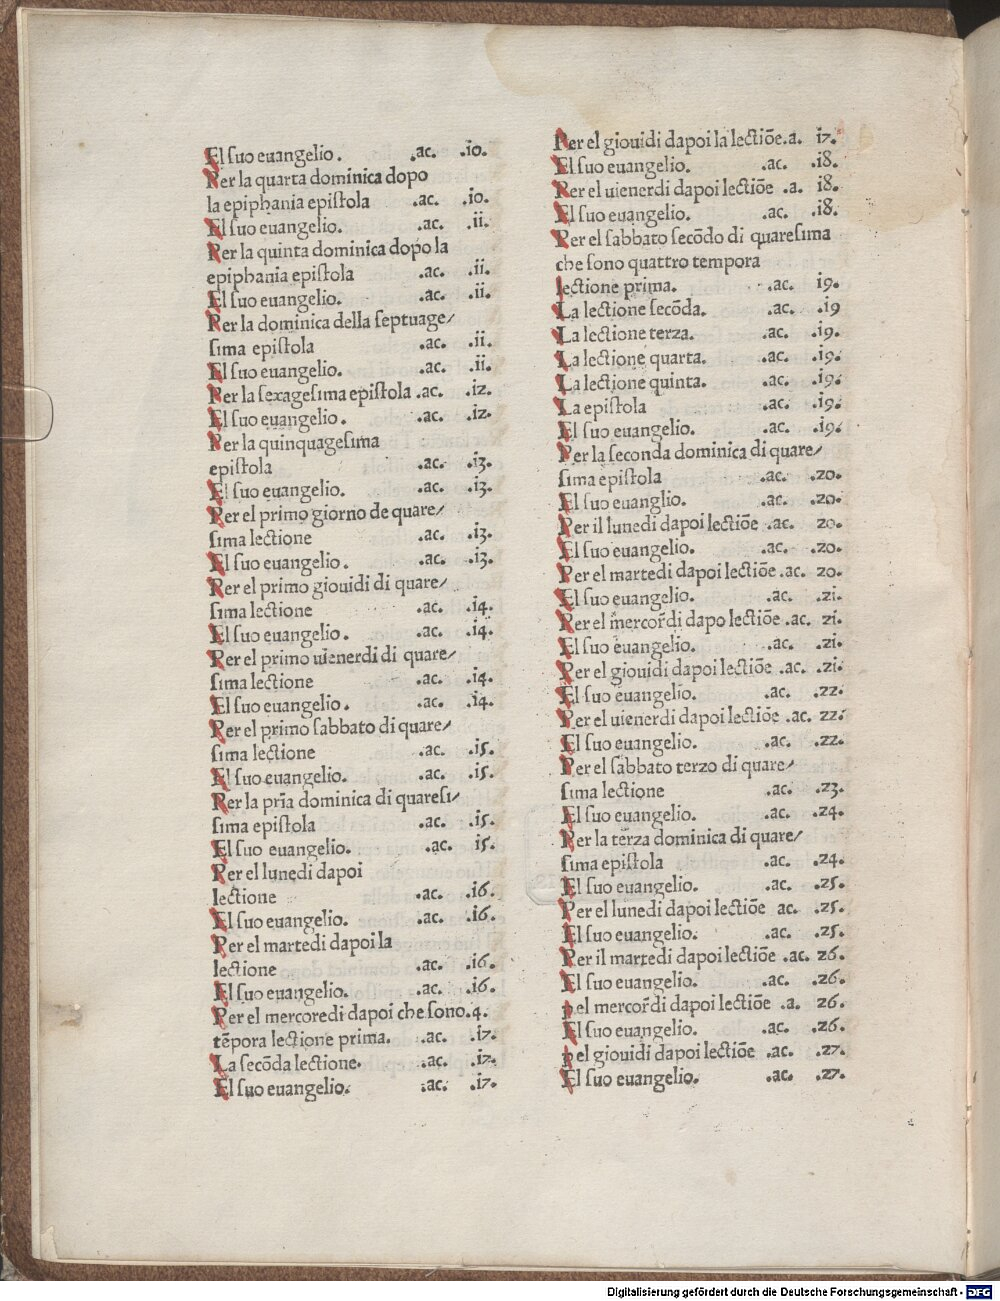 El suo euangelio. .ac. .io.
Per la quarta dominica dopo
la epiphania epistola .ac. .io.
El suo euangelio. .ac. .ii.
Per la quinta dominica dopo la
epiphania epistola .ac. .ii.
El suo euangelio. .ac. .ii.
Per la dominica della septuage/
sima epistola .ac. .ii.
El suo euangelio. .ac. .ii.
Per la sexagesima epistola .ac. .i2.
El suo euangelio. .ac. .i2.
Per la quinquagesima
epistola .ac. .i3.
El suo euangelio. .ac. .i3.
Per el primo giorno de quare/
sima lectione .ac. .i3.
El suo euangelio. .ac. .i3.
Per el primo giouidi di quare/
sima lectione .ac. .i4.
El suo euangelio. .ac. .i4.
Per el primo uienerdi di quare/
sima lectione .ac. .i4.
El suo euangelio. .ac. .i4.
Per el primo sabbato di quare/
sima lectione .ac. .i5.
El suo euangelio. .ac. .i5.
Per la prĩa dominica di quaresi/
sima epistola .ac. .i5.
El suo euangelio. .ac. i5.
Per el lunedi dapoi
lectione .ac. .i6.
El suo euangelio. .ac. .i6.
Per el martedi dapoi la
lectione .ac. .i6.
El suo euangelio. .ac. .i6.
Per el mercoredi dapoi che sono.4.
tẽpora lectione prima. .ac. .i7.
La secõda lectione. .ac. .i7.
El suo euangelio. .ac. .i7.
Per el giouidi dapoi la lectiõe.a. i7.
El suo euangelio. .ac. .i8.
Per el uienerdi dapoi lectiõe .a. i8.
El suo euangelio. .ac. .i8.
Per el sabbato secõdo di quaresima
che sono quattro tempora
lectione prima. .ac. i9.
La lectione secõda. .ac. .i9
La lectione terza. .ac. .i9.
La lectione quarta. .ac. .i9.
La lectione quinta. .ac. .i9.
La epistola .ac. .i9.
El suo euangelio. .ac. .i9.
Per la seconda dominica di quare/
sima epistola .ac. .20.
El suo euanglio. .ac. .20.
Per il lunedi dapoi lectiõe .ac. 20.
El suo euangelio. .ac. .20.
Per el martedi dapoi lectiõe .ac. 20.
El suo euangelio. .ac. .2i.
Per el mercor̃di dapo lectiõe .ac. 2i.
El suo euangelio. .ac. .2i.
Per el giouidi dapoi lectiõe .ac. .2i.
El suo euangelio. .ac. .22.
Per el uienerdi dapoi lectiõe .ac. 22.
El suo euangelio. .ac. .22.
Per el sabbato terzo di quare/
sima lectione .ac. .23.
El suo euangelio. .ac. .24.
Per la terza dominica di quare/
sima epistola .ac. .24.
El suo euangelio. .ac. .25.
Per el lunedi dapoi lectiõe ac. .25.
El suo euangelio. .ac. .25.
Per il martedi dapoi lectiõe .ac. 26.
El suo euangelio. .ac. .26.
ꝑ el mercor̃di dapoi lectiõe .a. 26.
El suo euangelio. .ac. .26.
ꝑ el giouidi dapoi lectiõe .ac. .27.
El suo euangelio. .ac. .27.
Digitalisierung gefördert durch die Deutsche Forschungsgemeinschaft - DFG